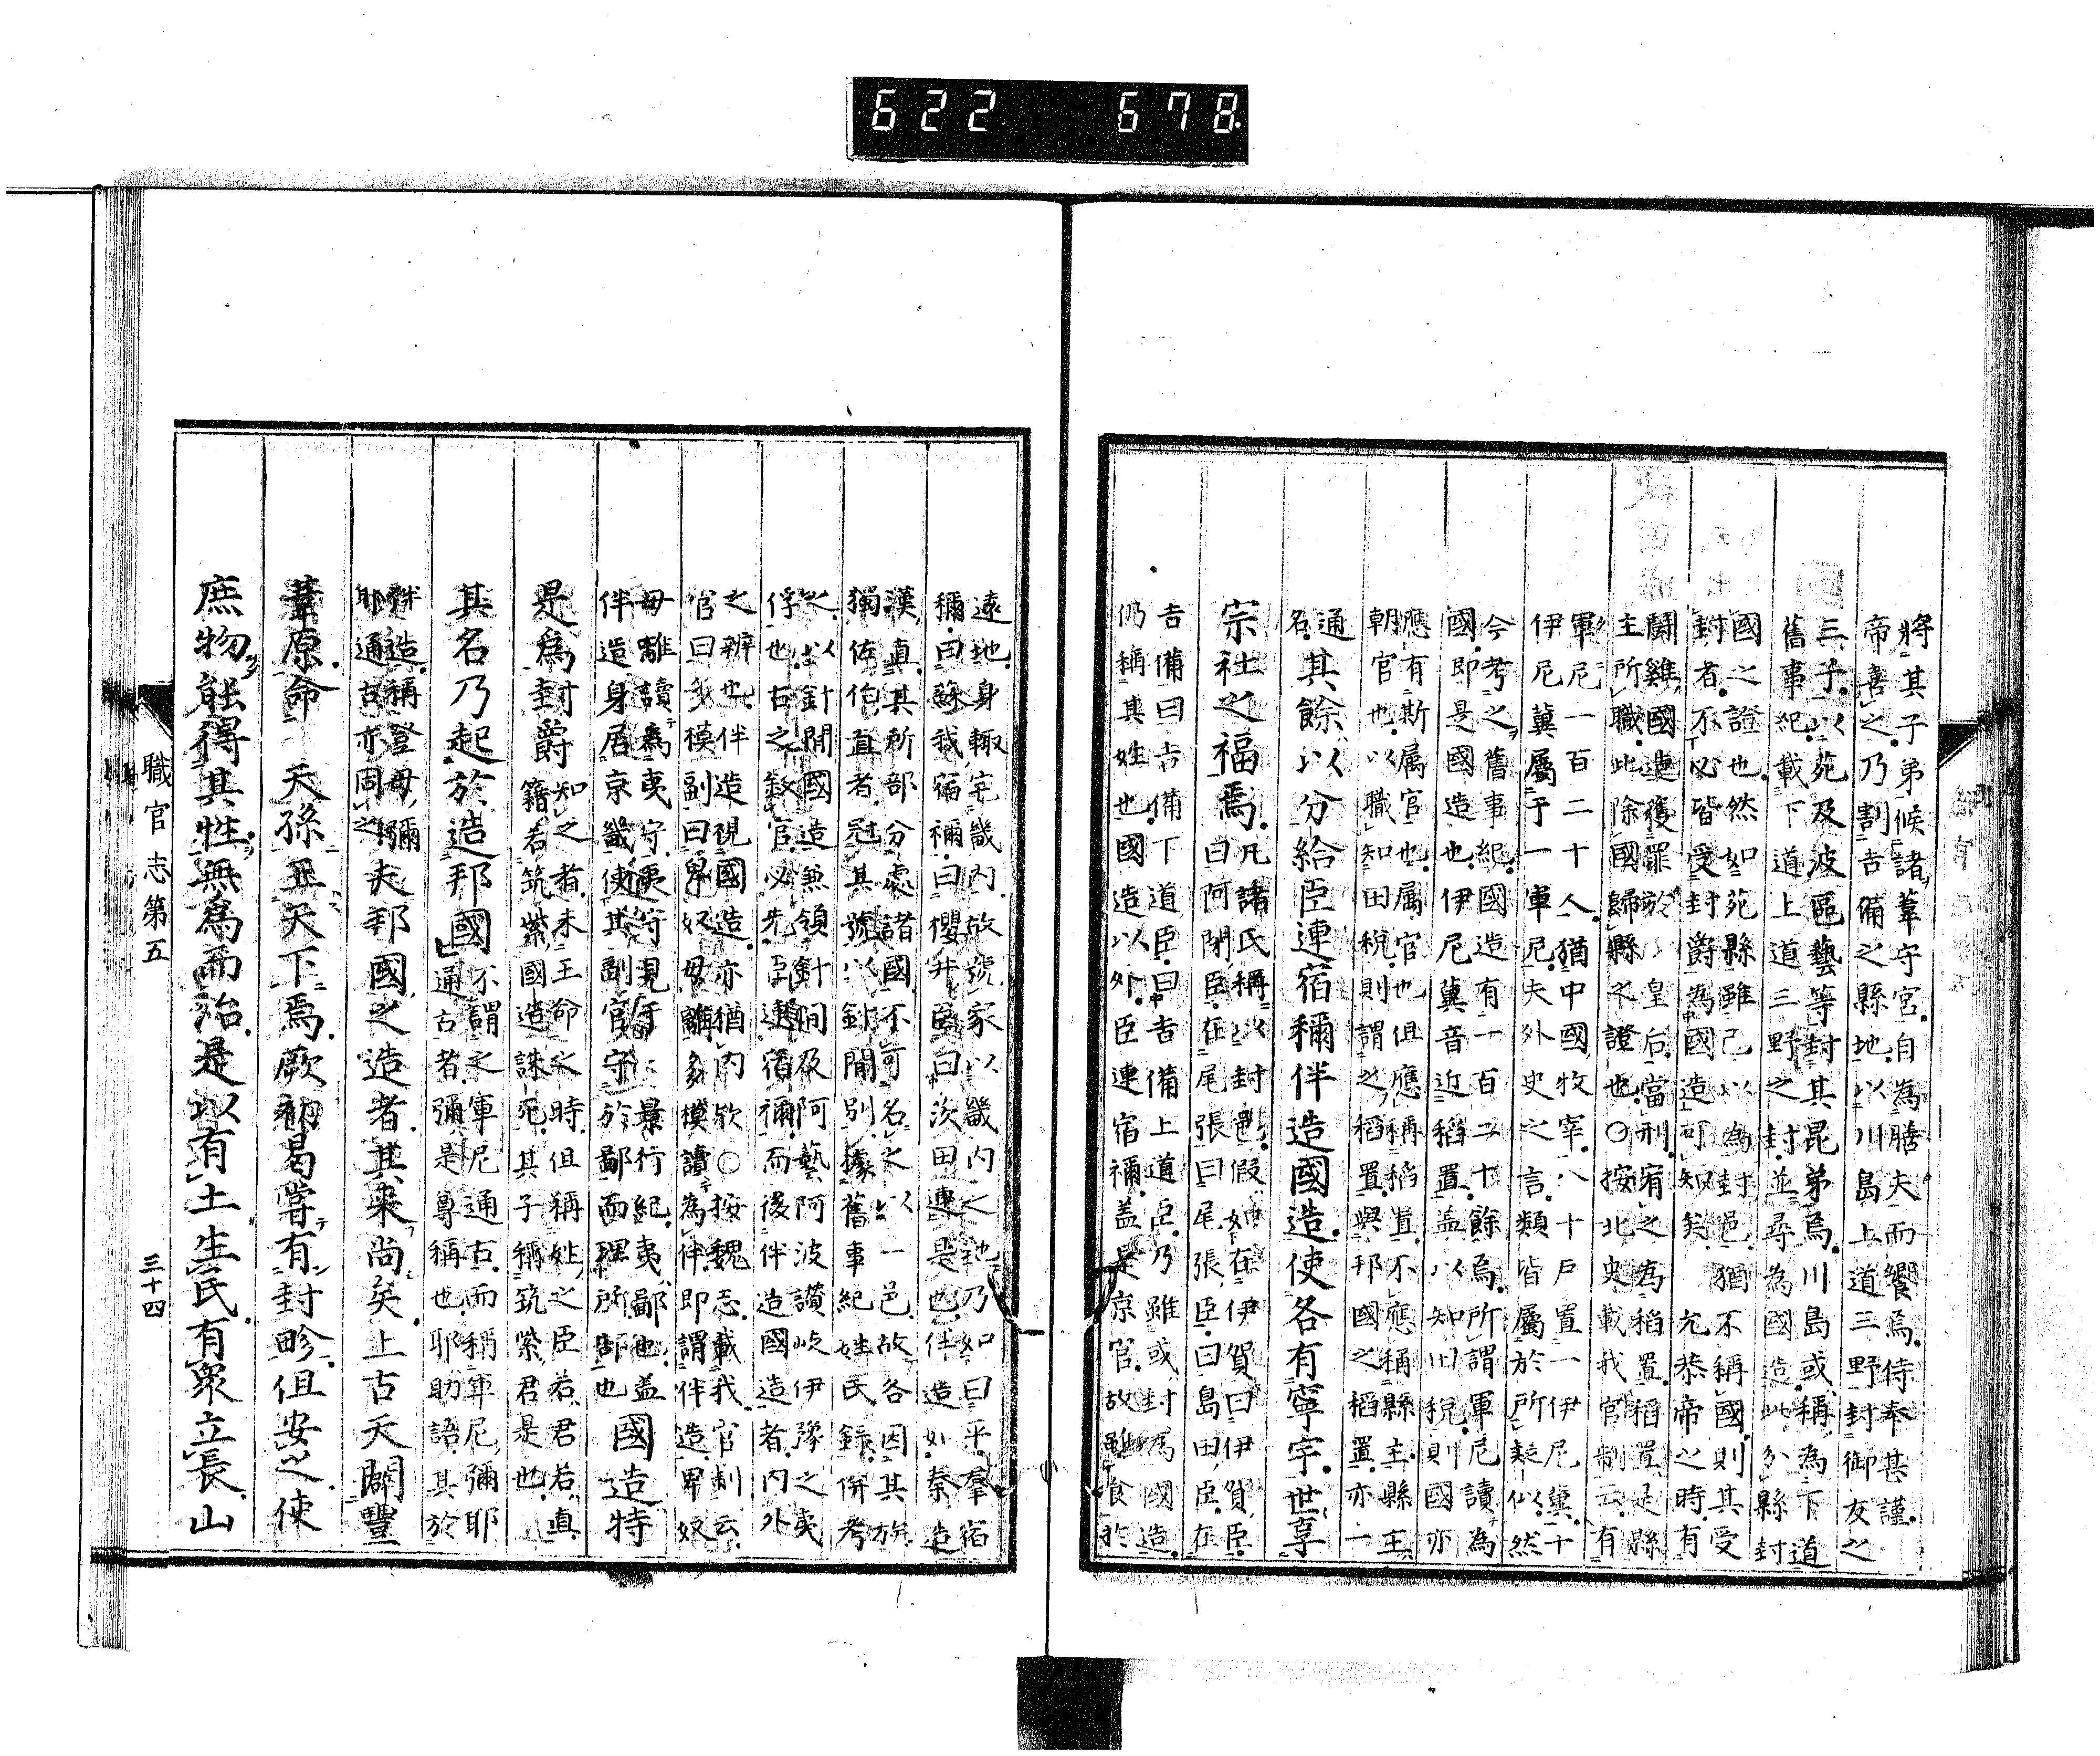 622 678
將其子弟候諸葦守宮自為膳夫而饗焉侍奉甚謹
帝喜之乃割吉備之縣地以川島上道三野封御友之
三子以苑及波區藝等封其昆弟焉川島或稱為下道
舊事紀載下道上道三野之封並尋為國造此分縣封
國之證也然如苑縣雖已以為封邑猶不稱國則其受
封者不必皆受封爵為國造可知矣允恭帝之時有
鬪雞國造獲罪於皇后當刑宥之為稻置稻置是縣
主所職此除國歸縣之證也○按北史載我官制云有
軍尼一百二十人猶中國牧宰八十戶置一伊尼冀十
伊尼冀屬于一軍尼夫外史之言類皆屬於所疑似然
今考之舊事紀國造有一百二十餘焉所謂軍尼讀為
國即是國造也伊尼冀音近稻置蓋以知田稅則國亦
應有斯属官也属官也但應稱稻置不應稱縣主縣主
朝官也以職知田稅則謂之稻置與邦國之稻置亦一
通
名其餘以分給臣連宿禰伴造國造使各有寧宇世享
宗社之福焉凡諸氏稱以封邑假如在伊賀曰伊賀臣
曰阿閉臣在尾張曰尾張臣曰島田臣在
吉備曰吉備下道臣曰吉備上道臣乃雖或封為國造
仍稱其姓也國造以外臣連宿禰蓋是京官故雖食於
遠地身輙宅畿內故號家以畿內之地乃如曰平羣宿
禰曰蘇我宿禰曰櫻井臣曰茨田連是也伴造如秦造
漢直其所部分處諸國不可名之以一邑故各因其族
獨佐伯直者冠其號以針間別據舊事紀姓氏錄併考
之以針間國造兼領針間及阿藝阿波讚岐伊豫之夷
俘也古之敘官必先臣連宿禰而後伴造國造者內外
之辨也伴造視國造亦猶內欤○按魏志載我官制云
官曰多模副曰卑奴母離多模讀為伴即謂伴造卑奴
母離讀為夷守夷守見于景行紀夷鄙也蓋
伴造身居京畿使其副官守於鄙而理所部也國造特
是為封爵知之者未王命之時但稱姓之臣若君若直
籍若筑紫國造誅死其子稱筑紫君是也
其名乃起於造邦國不謂之軍尼通古而稱軍尼彌耶
通古者彌是尊稱也耶助語其於
伴造稱登母彌
耶通古亦同之夫邦國之造者其来尚矣上古天闢豐
葦原命天孫王天下焉厥初曷嘗有封畛但安之使
庶物能得其性無為而治是以有土生民有衆立長山
職官志第五
三十四